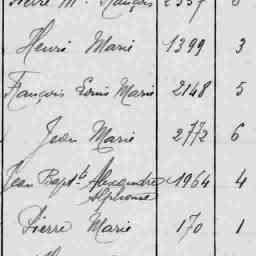 Henri Marie 1399 3
François Louis Marie 2148 5
Jean Marie 2772 6
Jean Bapt.te Alexandre 1964 4
Alphonse
Pierre Marie 170 1